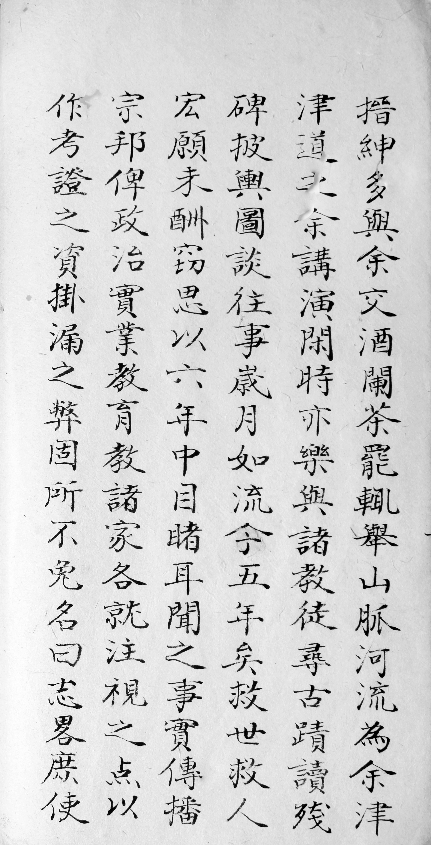 搢紳多與余交酒闌茶罷輒舉山脈河流為余津
津道之余講演閑時亦樂與諸教徒尋古蹟讀殘
碑披輿圖談往事歲月如流今五年矣救世救人
宏願未酬窃思以六年中目睹耳聞之事實傳播
宗邦俾政治實業教育教諸家各就注視之点以
作考證之資掛漏之弊固所不免名曰志畧庶使